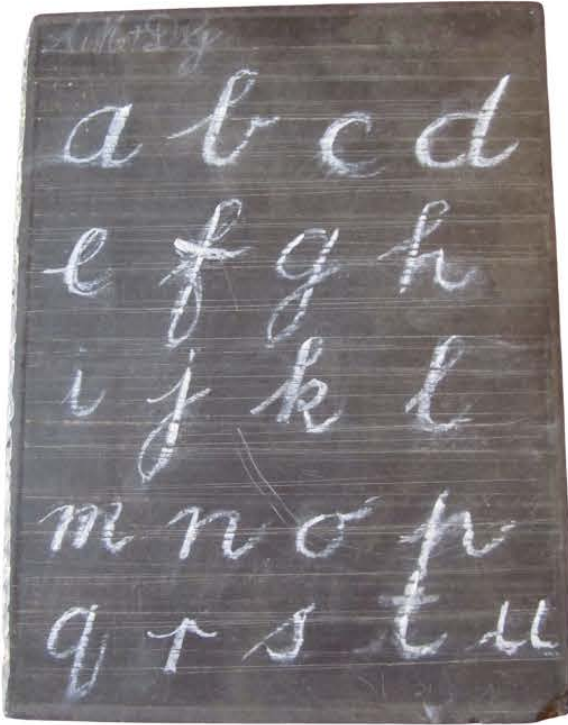 a b c d
e f g h
i j k l
m n o p
q r s t u